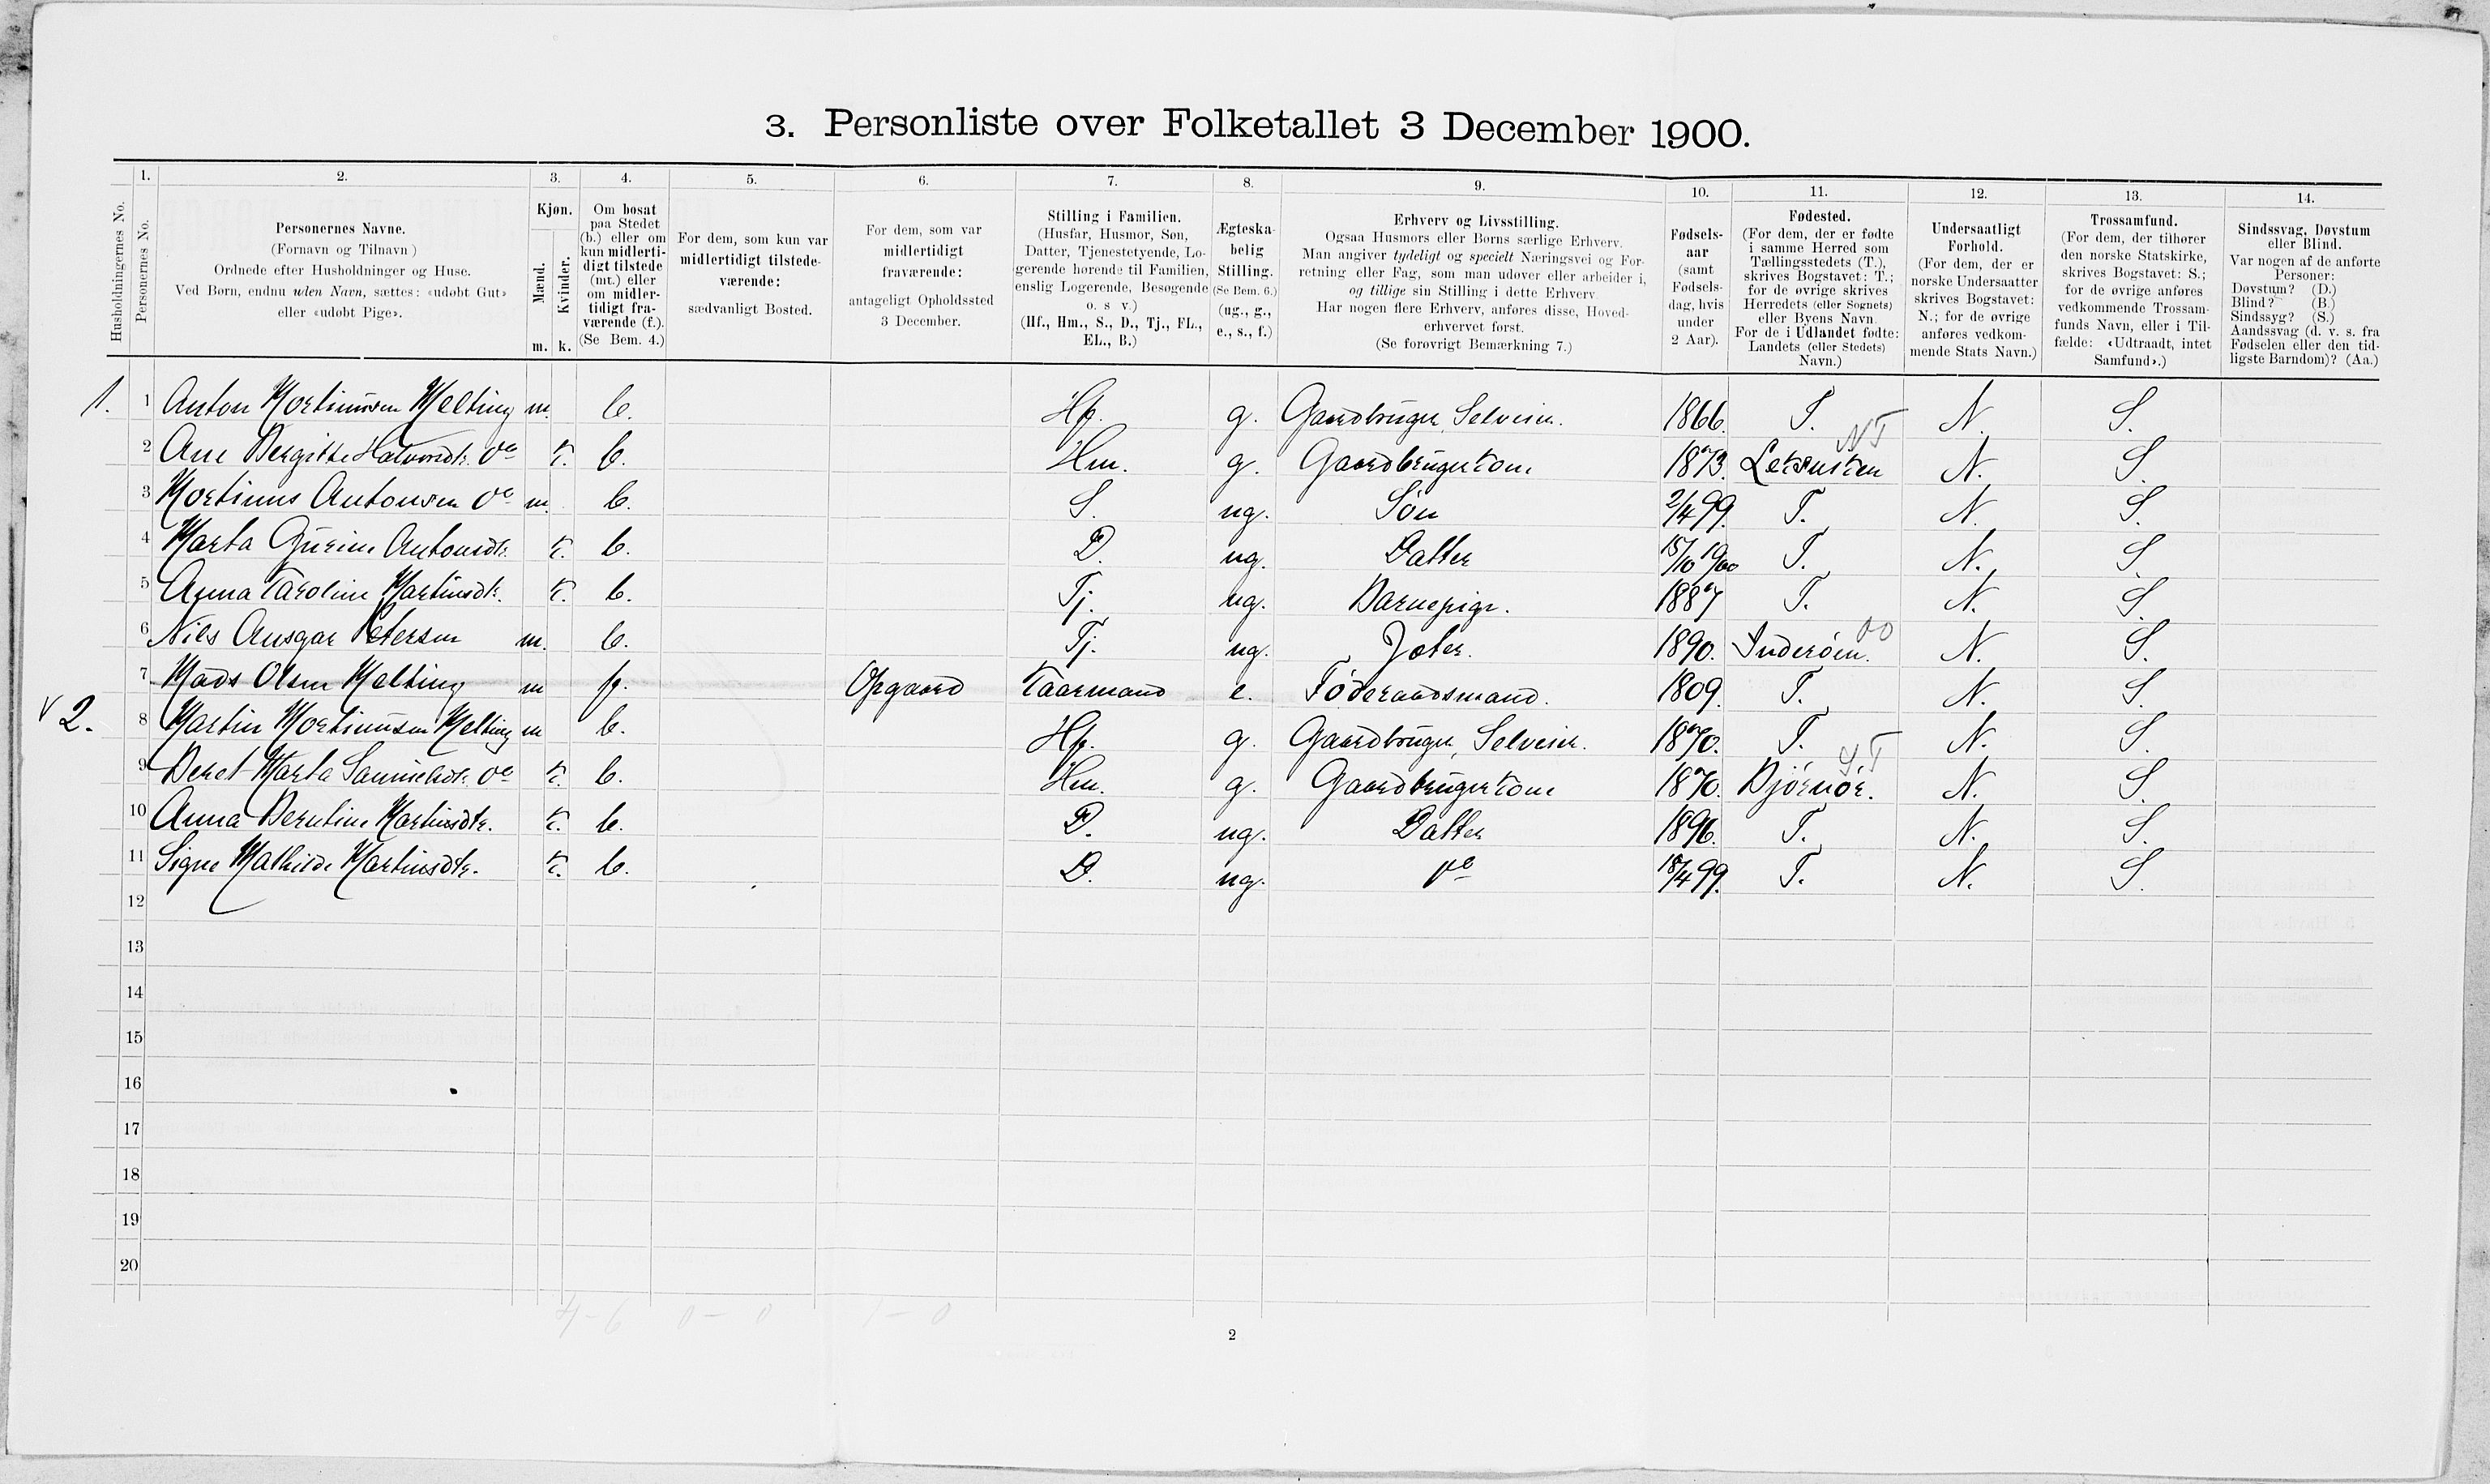 3. Personliste over Folketallet 3 December 1900.
Husholdningernes No.
1. Personernes No.
2. Personernes Navne.
(Fornavn og Tilnavn)
Ordnede efter Husholdninger og Huse.
Ved Børn, endnu uden Navn, sættes: «udøbt Gut»
eller «udøbt Pige».
3. Kjøn.
Mænd. m.
Kvinder. k.
4. Om bosat
paa Stedet
(b.) eller om
kun midlerti-
digt tilstede
(mt.) eller
om midler-
tidigt fra-
værende (f.).
(Se Bem. 4.)
5. For dem, som kun var
midlertidigt tilstede-
værende:
sædvanligt Bosted.
6. For dem, som var
midlertidigt
fraværende:
antageligt Opholdssted
3 December.
7. Stilling i Familien.
(Husfar, Husmor, Søn,
Datter, Tjenestetyende, Lo-
gerende hørende til Familien,
enslig Logerende, Besøgende
o. s v.)
(Hf., Hm., S., D., Tj., FL.,
EL., B.)
8. Ægteska-
belig
Stilling.
(Se Bem. 6.)
(ug., g.,
e., s., f.)
9. Erhverv og Livsstilling.
Ogsaa Husmors eller Børns særlige Erhverv.
Man angiver tydeligt og specielt Næringsvei og For-
retning eller Fag, som man udøver eller arbeider i,
og tillige sin Stilling i dette Erhverv
Har nogen flere Erhverv, anføres disse, Hoved-
erhvervet først.
(Se forøvrigt Bemærkning 7.)
10. Fødsels-
aar
(samt
Fødsels-
dag, hvis
under
2 Aar).
11. Fødested.
(For dem, der er fødte
i samme Herred som
Tællingsstedets (T.),
skrives Bogstavet: T.;
for de øvrige skrives
Herredets (eller Sognets)
eller Byens Navn
For de i Udlandet fødte:
Landets (eller Stedets)
Navn.)
12. Undersaatligt
Forhold.
(For dem, der er
norske Undersaatter
skrives Bogstavet:
N.; for de øvrige
anføres vedkom-
mende Stats Navn.)
13. Trossamfund.
(For dem, der tilhører
den norske Statskirke,
skrives Bogstavet: S.;
for de øvrige anføres
vedkommende Trossam-
funds Navn, eller i Til-
fælde: «Udtraadt, intet
Samfund».)
14. Sindssvag, Døvstum
eller Blind.
Var nogen af de anførte
Personer:
Døvstum? (D.)
Blind? (B.)
Sindssyg? (S.)
Aandssvag (d. v. s. fra
Fødselen eller den tid-
ligste Barndom)? (Aa.)
1. 1 Anton Mortinusen Melting m. b. Hf. g. Gaardbruger, Selveier. 1866. T. N. S.
2 Ane Bergitte Halvorsdtr. do k. b. Hm. g. Gaardbrugerkone 1873. Leksviken NT N. S.
3 Mortinus Antonsen do m. b. S. ug. Søn 2/4 99. T. N. S.
4 Marta Gurine Antonsdtr. k. b. D. ug. Datter 15/10 1900 T. N. S.
5 Anna Karoline Martinsdtr. k. b. Tj. ug. Barnepige. 1887 T. N. S.
6 Nils Ansgar Petersen m. b. Tj. ug. Jøter. 1890. Inderøen. N. S.
7 Mads Olsen Melting m f. Opgaard Kaarmand e. Føderaadsmand. 1809. T. N. S.
v 2. 8 Martin Mortinusen Melting m b. Hf. g. Gaardbruger, Selveier. 1870. T. N. S.
9 Beret Marta Samuelsdtr. do k. b. Hm. g. Gaardbrugerkone 1870. Bjørnør. ST N. S.
10 Anna Berntine Martinsdtr. k. b. D. ug. Datter 1896. T. N. S.
11 Signe Mathilde Martinsdtr. k. b. D. ug. do 18/4 99. T. N. S.
12
13
14
15
16
17
18
19
20
4 - 6 0 - 0 1 - 0
2